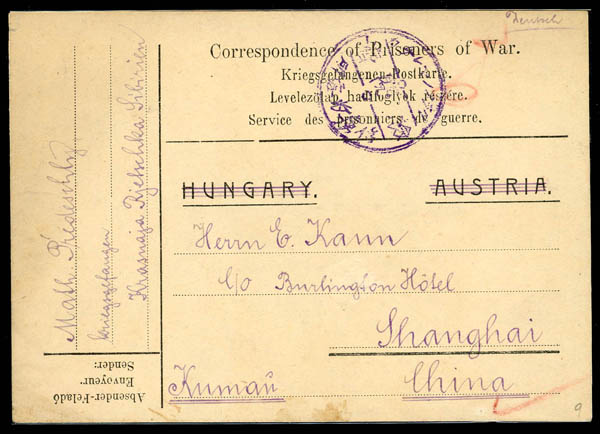 Deutsch
Correspondence of Prisoners of War.
Kriegsgefangenen-Postkarte.
Levelezőlap hadifoglyok részére.
Service des prisonniers de guerre.
HUNGARY. AUSTRIA.
Herrn E. Kann
c/o Burlington Hôtel
Shanghai
Kumaū China
Math. Predeschly
kriegsgefangen
Krasnaja Rjetschka Sibirien
Absender-Feladó
Envoyeur.
Sender:
9